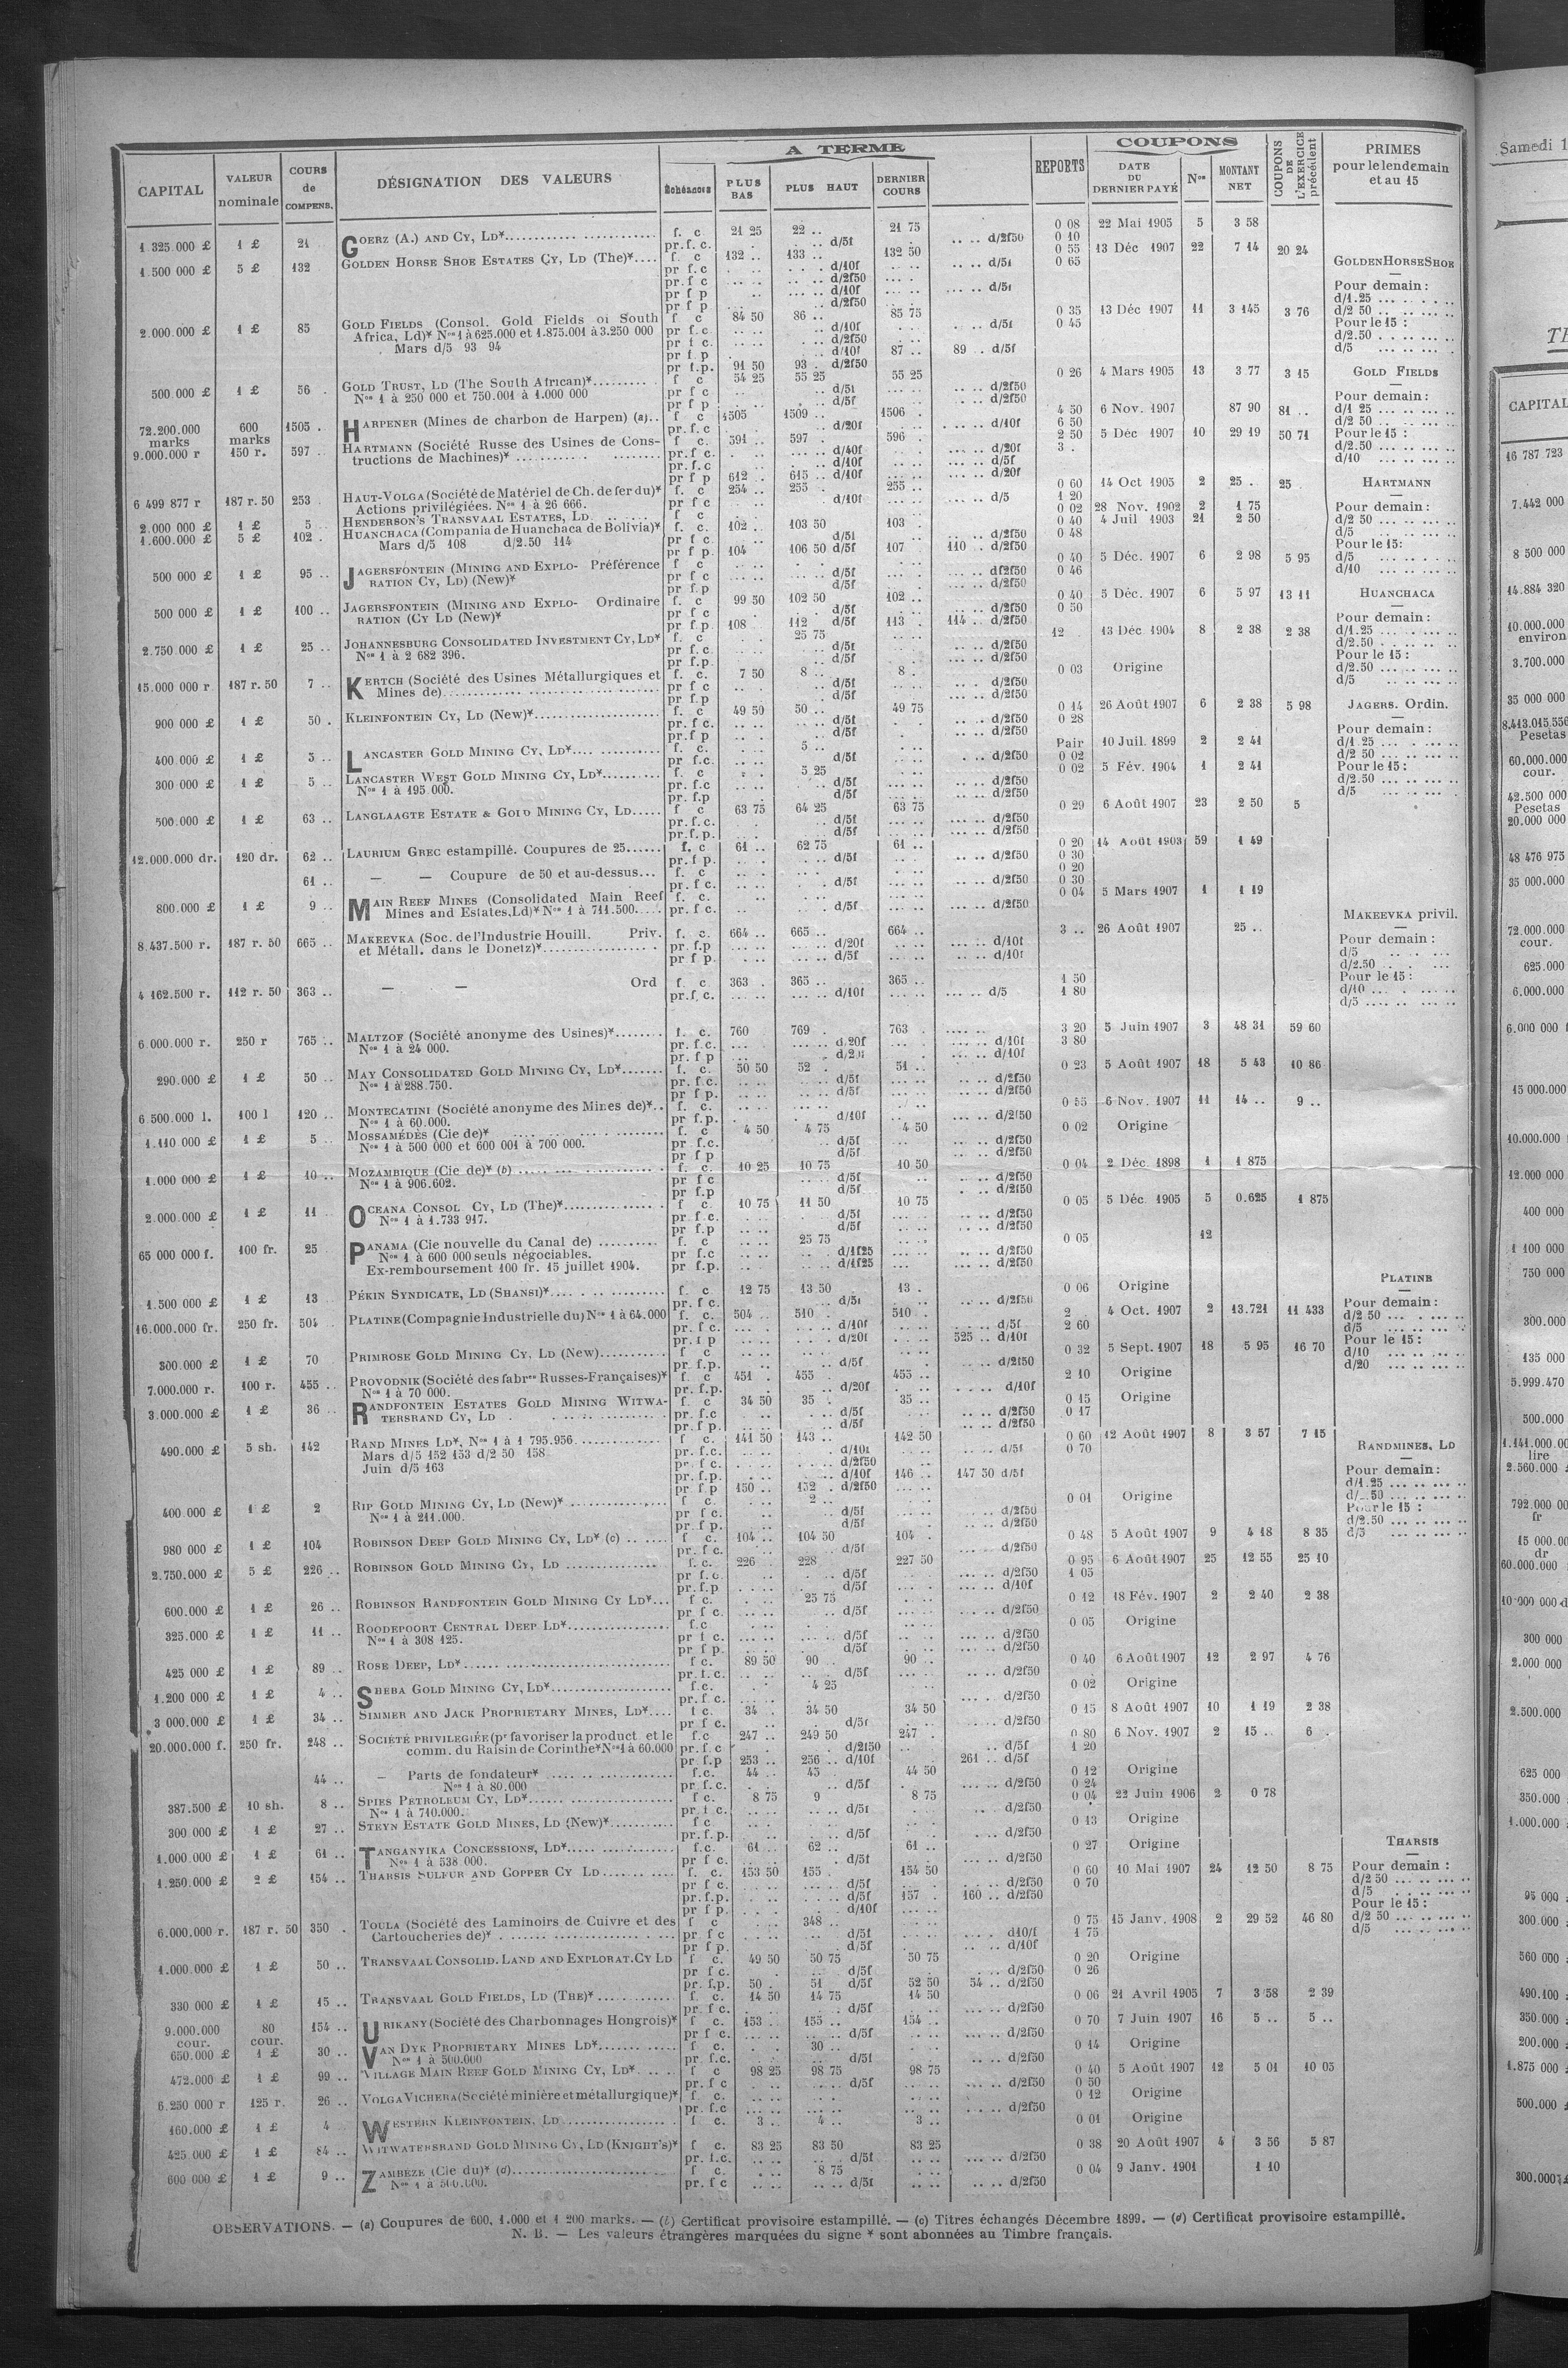 A TERME
COUPONS
CAPITAL | VALEUR nominale | COURS de COMPENS. | DÉSIGNATION DES VALEURS | Échéances | PLUS BAS | PLUS HAUT | DERNIER COURS | REPORTS | DATE DU DERNIER PAYÉ | Nos | MONTANT NET | COUPONS DE L'EXERCICE précédent | PRIMES pour le lendemain et au 15
1.325.000 £ | 1 £ | 21 | GOERZ (A.) AND CY, LD* | f. c | 21 25 | 22 .. | 21 75 | 0 08 | 22 Mai 1905 | 5 | 3 58
pr. f. c. | d/5f | d/2f50 | 0 10
1.500 000 £ | 5 £ | 132 | GOLDEN HORSE SHOE ESTATES CY, LD (The)* | f. c | 132 .. | 133 .. | 132 50 | 0 55 | 13 Déc 1907 | 22 | 7 14 | 20 24
pr f. c | d/10f | d/5f | 0 65
pr. f c | d/2f50
pr f p | d/10f | d/5f
pr f p | d/2f50
2.000.000 £ | 1 £ | 85 | GOLD FIELDS (Consol. Gold Fields of South | f c | 84 50 | 86 .. | 85 75 | 0 35 | 13 Déc 1907 | 11 | 3 145 | 3 76
Africa, Ld)* Nos 1 à 625.000 et 1.875.001 à 3.250 000 | pr f. c | d/10f | d/5f | 0 45
Mars d/5 93 94 | pr f c. | d/2f50
pr f p | d/10f | 87 .. | 89 . d/5f
pr f.p. | 91 50 | 93 . d/2f50
500.000 £ | 1 £ | 56 | GOLD TRUST, LD (The South African)* | f c | 54 25 | 55 25 | 55 25 | 0 26 | 4 Mars 1905 | 13 | 3 77 | 3 15
Nos 1 à 250 000 et 750.001 à 1.000 000 | pr f c | d/5f | d/2f50
pr f p | d/5f | d/2f50
72.200.000 marks | 600 marks | 1505 . | HARPENER (Mines de charbon de Harpen) (a) | f c | 1505 | 1509 .. | 1506 . | 4 50 | 6 Nov. 1907 | 87 90 | 81 ..
pr. f. c | d/20f | d/10f | 6 50
9.000.000 r | 150 r. | 597 | HARTMANN (Société Russe des Usines de Cons- | f c. | 591 .. | 597 . | 596 . | 2 50 | 5 Déc 1907 | 10 | 29 19 | 50 71
tructions de Machines)* | pr. f c. | d/40f | d/20f | 3 .
pr. f. c | d/10f | d/5f
pr f p | 612 .. | 615 .. d/10f | d/20f
6 499 877 r | 187 r. 50 | 253 | HAUT-VOLGA (Société de Matériel de Ch. de fer du)* | f. c | 254 .. | 255 . | 255 .. | 0 60 | 14 Oct 1905 | 2 | 25 . | 25
Actions privilégiées. Nos 1 à 26 666. | pr f c | d/10f | d/5 | 1 20
2.000 000 £ | 1 £ | 5 | HENDERSON'S TRANSVAAL ESTATES, LD | f c | 0 02 | 28 Nov. 1902 | 2 | 1 75
1.600.000 £ | 5 £ | 102 . | HUANCHACA (Compania de Huanchaca de Bolivia)* | f. c. | 102 . | 103 50 | 103 . | 0 40 | 4 Juil 1903 | 21 | 2 50
Mars d/5 108 d/2.50 114 | pr f c. | d/5f | d/2f50 | 0 48
pr f p. | 104 | 106 50 d/5f | 107 | 110 . d/2f50
500 000 £ | 1 £ | 95 .. | JAGERSFONTEIN (MINING AND EXPLO- Préférence | f c | 0 40 | 5 Déc. 1907 | 6 | 2 98 | 5 95
RATION CY, LD) (New)* | pr f c | d/5f | d/2f50 | 0 46
pr f.p | d/5f | d/2f50
500 000 £ | 1 £ | 100 .. | JAGERSFONTEIN (MINING AND EXPLO- Ordinaire | f. c | 99 50 | 102 50 | 102 .. | 0 40 | 5 Déc. 1907 | 6 | 5 97 | 13 11
RATION (CY LD (New)* | pr f c | d/5f | d/2f50 | 0 50
pr f.p. | 108 | 112 d/5f | 113 . | 114 .. d/2f50
2.750.000 £ | 1 £ | 25 .. | JOHANNESBURG CONSOLIDATED INVESTMENT CY, LD* | f. c | 25 75 | 12 | 13 Déc 1904 | 8 | 2 38 | 2 38
Nos 1 à 2 682 396. | pr f.c. | d/5f | d/2f50
pr f.p. | d/5f | d/2f50
15.000 000 r | 187 r. 50 | 7 .. | KERTCH (Société des Usines Métallurgiques et | f. c. | 7 50 | 8 .. | 8 . | 0 03 | Origine
Mines de) | pr f c | d/5f | d/2f50
pr f.p | d/5f | d/2f50
900 000 £ | 1 £ | 50 . | KLEINFONTEIN CY, LD (New)* | f. c | 49 50 | 50 .. | 49 75 | 0 14 | 26 Août 1907 | 6 | 2 38 | 5 98
pr. f c. | d/5f | d/2f50 | 0 28
pr. f p | d/5f | d/2f50
400 000 £ | 1 £ | 5 .. | LANCASTER GOLD MINING CY, LD* | f. c. | 5 .. | Pair | 10 Juil. 1899 | 2 | 2 41
pr f.c. | d/5f | d/2f50 | 0 02
300 000 £ | 1 £ | 5 .. | LANCASTER WEST GOLD MINING CY, LD* | f. c | 5 25 | 0 02 | 5 Fév. 1904 | 1 | 2 41
Nos 1 à 195 000. | pr. f.c | d/5f | d/2f50
pr. f.p | d/5f | d/2f50
500.000 £ | 1 £ | 63 .. | LANGLAAGTE ESTATE & GOLD MINING CY, LD | f c | 63 75 | 64 25 | 63 75 | 0 29 | 6 Août 1907 | 23 | 2 50 | 5
pr. f. c. | d/5f | d/2f50
pr. f. p. | d/5f | d/2f50
12.000.000 dr. | 120 dr. | 62 .. | LAURIUM GREC estampillé. Coupures de 25 | f. c | 61 .. | 62 75 | 61 .. | 0 20 | 14 Août 1903 | 59 | 1 49
pr. f p. | d/5f | d/2f50 | 0 30
61 .. | — — Coupure de 50 et au-dessus | f. c | 0 20
pr. f c. | d/5f | d/2f50 | 0 30
800.000 £ | 1 £ | 9 .. | MAIN REEF MINES (Consolidated Main Reef | f. c. | 0 04 | 5 Mars 1907 | 1 | 1 19
Mines and Estates, Ld)* Nos 1 à 711.500. | pr. f c. | d/5f | d/2f50
8.437.500 r. | 187 r. 50 | 665 .. | MAKEEVKA (Soc. de l'Industrie Houill. Priv. | f. c. | 664 .. | 665 .. | 664 .. | 3 .. | 26 Août 1907 | 25 ..
et Métall. dans le Donetz)* | pr. f.p | d/20f | d/10f
pr f p. | d/5f | d/10f
4 162.500 r. | 112 r. 50 | 363 .. | — — Ord | f. c | 363 . | 365 .. | 365 .. | 1 50
pr. f. c. | d/10f | d/5 | 1 80
6.000.000 r. | 250 r | 765 .. | MALTZOF (Société anonyme des Usines)* | f. c. | 760 | 769 . | 763 . | 3 20 | 5 Juin 1907 | 3 | 48 31 | 59 60
Nos 1 à 24 000. | pr. f.c. | d/20f | d/10f | 3 80
pr. f p | d/10f
290.000 £ | 1 £ | 50 .. | MAY CONSOLIDATED GOLD MINING CY, LD* | f. c. | 50 50 | 52 . | 51 .. | 0 23 | 5 Août 1907 | 18 | 5 43 | 10 86
Nos 1 à 288.750. | pr. f.c. | d/5f | d/2f50
pr f p. | d/5f | d/2f50
6 500.000 l. | 100 l | 120 .. | MONTECATINI (Société anonyme des Mines de)* | f. c. | 0 55 | 6 Nov. 1907 | 11 | 14 .. | 9 ..
Nos 1 à 60.000. | pr f.p. | d/10f | d/2f50
1.110 000 £ | 1 £ | 5 | MOSSAMÉDÈS (Cie de)* | f. c | 4 50 | 4 75 | 4 50 | 0 02 | Origine
Nos 1 à 500 000 et 600 001 à 700 000. | pr f.c. | d/5f | d/2f50
pr f p | d/5f | d/2f50
1.000 000 £ | 1 £ | 10 .. | MOZAMBIQUE (Cie de)* (b) | f. c. | 10 25 | 10 75 | 10 50 | 0 04 | 2 Déc. 1898 | 1 | 1 875
Nos 1 à 906.602. | pr f c | d/5f | d/2f50
pr f.p | d/5f | d/2f50
2.000.000 £ | 1 £ | 11 | OCEANA CONSOL CY, LD (The)* | f c. | 10 75 | 11 50 | 10 75 | 0 05 | 5 Déc. 1905 | 5 | 0.625 | 1 875
Nos 1 à 1.733 917. | pr f.c. | d/5f | d/2f50
pr f.p | d/5f | d/2f50
65 000 000 f. | 100 fr. | 25 | PANAMA (Cie nouvelle du Canal de) | f. c | 25 75 | 0 05 | 12
Nos 1 à 600 000 seuls négociables. | pr f.c | d/1f25 | d/2f50
Ex-remboursement 100 fr. 15 juillet 1904. | pr f.p. | d/1f25 | d/2f50
1.500 000 £ | 1 £ | 13 | PÉKIN SYNDICATE, LD (SHANSI)* | f. c | 12 75 | 13 50 | 13 . | 0 06 | Origine
pr. f c. | d/5f | d/2f50
16.000.000 fr. | 250 fr. | 504 | PLATINE (Compagnie Industrielle du) Nos 1 à 64.000 | f. c. | 504 .. | 510 . | 510 . | 2 . | 4 Oct. 1907 | 2 | 13.721 | 11 433
pr. f c. | d/10f | d/5f | 2 60
pr. f p | d/20f | 525 .. d/10f
300.000 £ | 1 £ | 70 | PRIMROSE GOLD MINING CY, LD (New) | f c | 0 32 | 5 Sept. 1907 | 18 | 5 95 | 16 70
pr. f.p. | d/5f | d/2f50
7.000.000 r. | 100 r. | 455 .. | PROVODNIK (Société des fabres Russes-Françaises)* | f. c | 451 . | 455 . | 455 .. | 2 10 | Origine
Nos 1 à 70 000. | pr. f.p. | d/20f | d/10f
3.000.000 £ | 1 £ | 36 .. | RANDFONTEIN ESTATES GOLD MINING WITWA- | f. c | 34 50 | 35 . | 35 .. | 0 15 | Origine
TERSRAND CY, LD | pr. f.c | d/5f | d/2f50 | 0 17
pr. f p. | d/5f | d/2f50
490.000 £ | 5 sh. | 142 | RAND MINES LD*, Nos 1 à 1 795.956 | f c. | 141 50 | 143 .. | 142 50 | 0 60 | 12 Août 1907 | 8 | 3 57 | 7 15
Mars d/5 152 153 d/2 50 158 | pr. f.c. | d/10f | d/5f | 0 70
Juin d/5 163 | pr. f c. | d/2f50
pr. f.p. | d/10f | 146 .. | 147 50 d/5f
pr f p | 150 .. | 152 . d/2f50
400.000 £ | 1 £ | 2 | RIP GOLD MINING CY, LD (New)* | f c. | 2 .. | 0 01 | Origine
Nos 1 à 211.000. | pr f c. | d/5f | d/2f50
pr. f p. | d/5f | d/2f50
980 000 £ | 1 £ | 104 | ROBINSON DEEP GOLD MINING CY, LD* (c) | f c. | 104 .. | 104 50 | 104 . | 0 48 | 5 Août 1907 | 9 | 4 18 | 8 35
pr. f c. | d/5f | d/2f50
2.750.000 £ | 5 £ | 226 .. | ROBINSON GOLD MINING CY, LD | f. c. | 226 | 228 | 227 50 | 0 95 | 6 Août 1907 | 25 | 12 55 | 25 10
pr f. c. | d/5f | d/2f50 | 1 05
pr. f.p | d/5f | d/10f
600.000 £ | 1 £ | 26 .. | ROBINSON RANDFONTEIN GOLD MINING CY LD* | f c. | 25 75 | 0 12 | 18 Fév. 1907 | 2 | 2 40 | 2 38
pr f c. | d/5f | d/2f50
325.000 £ | 1 £ | 11 .. | ROODEPOORT CENTRAL DEEP LD* | f.c | 0 05 | Origine
Nos 1 à 308 125. | pr f c. | d/5f | d/2f50
pr f p. | d/5f | d/2f50
425 000 £ | 1 £ | 89 .. | ROSE DEEP, LD* | f c. | 89 50 | 90 .. | 90 .. | 0 40 | 6 Août 1907 | 12 | 2 97 | 4 76
pr. f.c. | d/5f | d/2f50
1.200 000 £ | 1 £ | 4 .. | SHEBA GOLD MINING CY, LD* | f.c. | 4 25 | 0 02 | Origine
pr. f c. | d/2f50
3 000.000 £ | 1 £ | 34 .. | SIMMER AND JACK PROPRIETARY MINES, LD* | f c. | 34 . | 34 50 | 34 50 | 0 15 | 8 Août 1907 | 10 | 1 19 | 2 38
pr f c. | d/5f | d/2f50
20.000.000 f. | 250 fr. | 248 .. | SOCIÉTÉ PRIVILÉGIÉE (pr favoriser la product et le | f.c | 247 .. | 249 50 | 247 . | 0 80 | 6 Nov. 1907 | 2 | 15 .. | 6 .
comm. du Raisin de Corinthe* Nos 1 à 60.000 | pr. f c | d/2f50 | d/5f | 1 20
pr f.p | 253 .. | 256 .. d/10f | 261 .. d/5f
44 .. | — Parts de fondateur* | f.c. | 44 .. | 45 . | 44 50 | 0 12 | Origine
Nos 1 à 80.000 | pr. f.c. | d/5f | d/2f50 | 0 24
387.500 £ | 10 sh. | 8 .. | SPIES PETROLEUM CY, LD* | f c. | 8 75 | 9 | 8 75 | 0 04 | 22 Juin 1906 | 2 | 0 78
Nos 1 à 710.000. | pr. f c. | d/5f | d/2f50
300.000 £ | 1 £ | 27 .. | STEYN ESTATE GOLD MINES, LD (New)* | f c | 0 13 | Origine
pr. f.p. | d/5f | d/2f50
1.000.000 £ | 1 £ | 61 .. | TANGANYIKA CONCESSIONS, LD* | f.c. | 61 .. | 62 .. | 61 .. | 0 27 | Origine
Nos 1 à 538 000. | pr f c. | d/5f | d/2f50
1.250.000 £ | 2 £ | 154 .. | THARSIS SULFUR AND COPPER CY LD | f. c. | 153 50 | 155 . | 154 50 | 0 60 | 10 Mai 1907 | 24 | 12 50 | 8 75
pr f c. | d/5f | d/2f50 | 0 70
pr. f.p. | d/5f | 157 . | 160 .. d/2f50
pr f p. | d/10f
6.000.000 r. | 187 r. 50 | 350 . | TOULA (Société des Laminoirs de Cuivre et des | f c | 348 .. | 0 75 | 15 Janv. 1908 | 2 | 29 52 | 46 80
Cartoucheries de)* | pr f c | d/5f | d10/f | 1 75
pr f p. | d/5f | d/10f
1.000.000 £ | 1 £ | 50 .. | TRANSVAAL CONSOLID. LAND AND EXPLORAT. CY LD | f c. | 49 50 | 50 75 | 50 75 | 0 20 | Origine
pr f c. | d/5f | d/2f50 | 0 26
pr. f.p. | 50 . | 51 d/5f | 52 50 | 54 .. d/2f50
330 000 £ | 1 £ | 15 .. | TRANSVAAL GOLD FIELDS, LD (THE)* | f. c. | 14 50 | 14 75 | 14 50 | 0 06 | 21 Avril 1905 | 7 | 3 58 | 2 39
pr. f c. | d/5f | d/2f50
9.000.000 cour. | 80 cour. | 154 .. | URIKANY (Société des Charbonnages Hongrois)* | f c. | 153 . | 155 .. | 154 .. | 0 70 | 7 Juin 1907 | 16 | 5 .. | 5 ..
pr f c. | d/5f | d/2f50
650.000 £ | 1 £ | 30 .. | VAN DYK PROPRIETARY MINES LD* | f c. | 30 .. | 0 14 | Origine
Nos 1 à 500.000 | pr. f.c. | d/5f | d/2f50
472.000 £ | 1 £ | 99 .. | VILLAGE MAIN REEF GOLD MINING CY, LD* | f c | 98 25 | 98 75 | 98 75 | 0 40 | 5 Août 1907 | 12 | 5 01 | 10 05
pr. f c | d/5f | d/2f50 | 0 50
6.250 000 r | 125 r. | 26 .. | VOLGA VICHERA (Société minière et métallurgique)* | f c. | 0 12 | Origine
pr. f.c | d/2f50
160.000 £ | 1 £ | 4 | WESTERN KLEINFONTEIN, LD | f c. | 3 .. | 4 .. | 3 .. | 0 01 | Origine
425 000 £ | 1 £ | 84 .. | WITWATERSRAND GOLD MINING CY, LD (KNIGHT'S)* | f c. | 83 25 | 83 50 | 83 25 | 0 38 | 20 Août 1907 | 4 | 3 56 | 5 87
pr. f.c. | d/5f | d/2f50
600 000 £ | 1 £ | 9 .. | ZAMBÈZE (Cie du)* (d) | f c. | 8 75 | 0 04 | 9 Janv. 1901 | 1 10
Nos 1 à 500.000. | pr. f c | d/5f | d/2f50
GOLDEN HORSE SHOE
Pour demain :
d/1.25
d/2 50
Pour le 15 :
d/2.50
d/5
GOLD FIELDS
Pour demain :
d/1 25
d/2 50
Pour le 15 :
d/2.50
d/10
HARTMANN
Pour demain :
d/2 50
d/5
Pour le 15:
d/5
d/10
HUANCHACA
Pour demain :
d/1.25
d/2.50
Pour le 15 :
d/2.50
d/5
JAGERS. Ordin.
Pour demain :
d/1 25
d/2 50
Pour le 15 :
d/2.50
d/5
MAKEEVKA privil.
Pour demain :
d/5
d/2.50
Pour le 15 :
d/10
d/5
PLATINE
Pour demain :
d/2 50
d/5
Pour le 15 :
d/10
d/20
RANDMINES, LD
Pour demain :
d/1.25
Pour le 15 :
d/2.50
d/5
THARSIS
Pour demain :
d/2 50
d/5
Pour le 15 :
d/2 50
d/5
OBSERVATIONS. — (a) Coupures de 600, 1.000 et 1 200 marks. — (b) Certificat provisoire estampillé. — (c) Titres échangés Décembre 1899. — (d) Certificat provisoire estampillé.
N. B. — Les valeurs étrangères marquées du signe * sont abonnées au Timbre français.
Samedi 1
CAPITAL
16 787 723
7.442 000
8 500 000
14.884 320
10.000.000
environ
3.700.000
35 000 000
8.413.015.550
Pesetas
60.000.000
cour.
42.500 000
Pesetas
20.000 000
48 476 975
35 000.000
72.000.000
cour.
625.000
6.000.000
6.000 000
15 000.000
10.000.000
12.000 000
400 000
1 100 000
750 000
300.000
135 000
5.999.470
500.000
lire
2.560.000
792.000 00
fr
15 000.00
dr
60.000.000
300 000
2.000 000
2.500.000
625 000
350.000
1.000.000
95 000
300.000
560 000
490.100
350.000
200.000
1.875 000
500.000
300.000 £